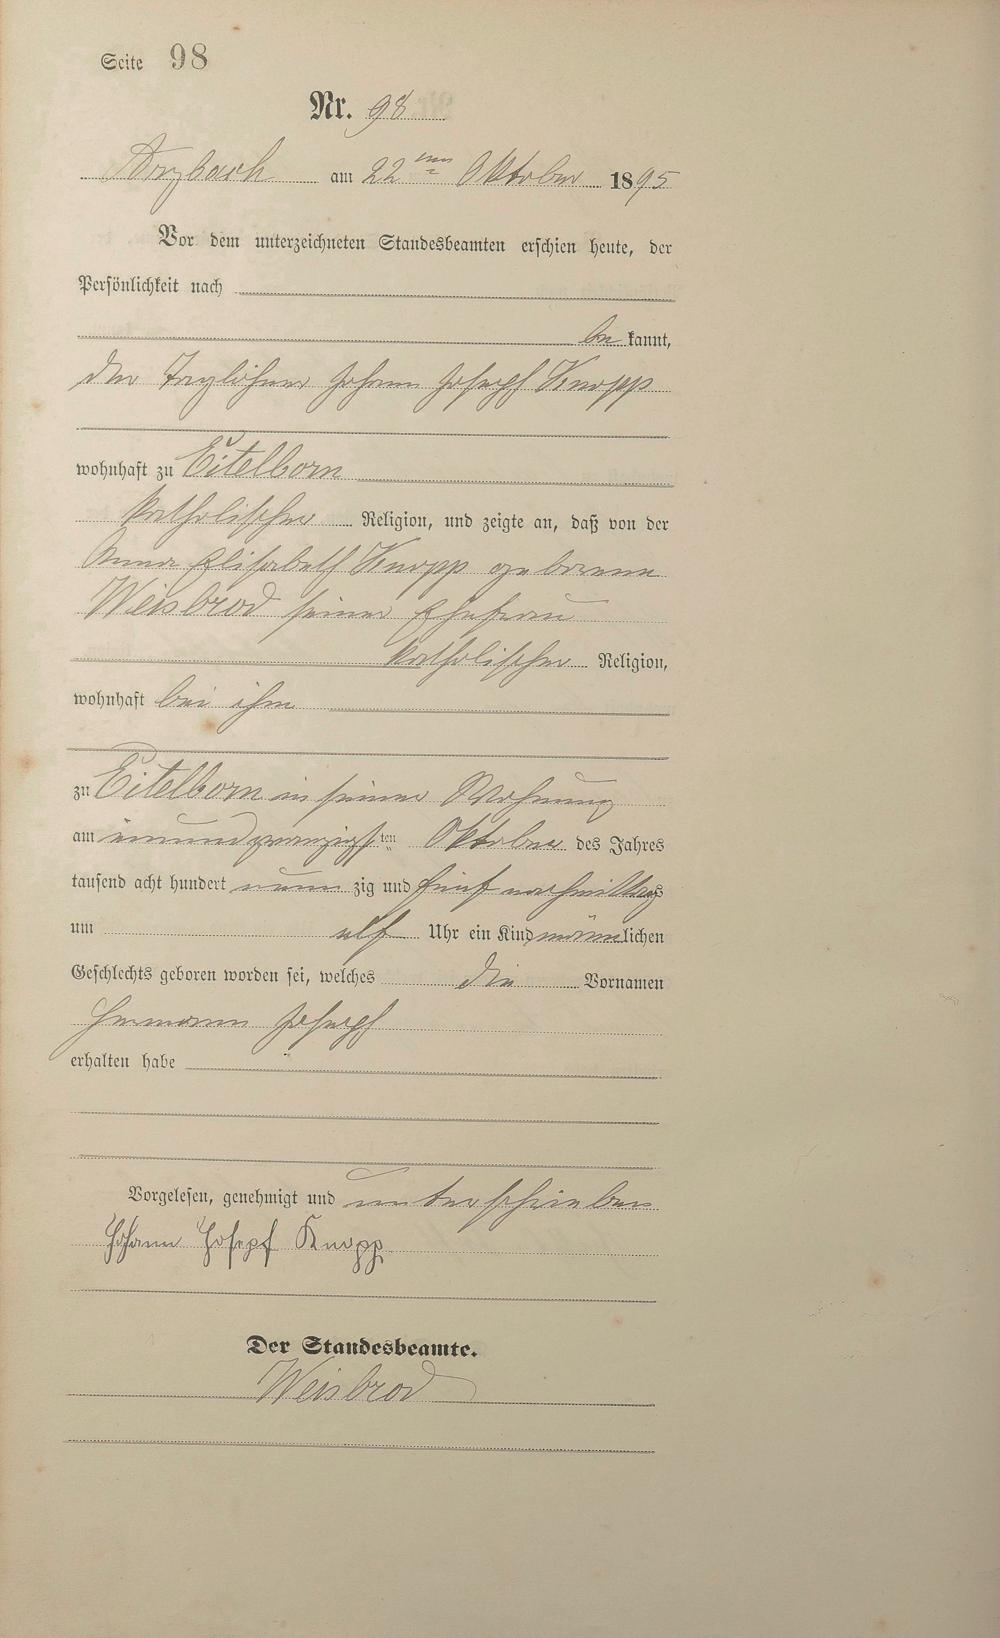 Seite 98
Nr. 98
Arzbach am 22ten Oktober 1895
Vor dem unterzeichneten Standesbeamten erschien heute, der
Persönlichkeit nach
bekannt,
der Taglöhner Johann Joseph Knopp
wohnhaft zu Eitelborn
katholischer Religion, und zeigte an, daß von der
Anna Elisabeth Knopp geborene
Weisbrod seiner Ehefrau
katholischer Religion,
wohnhaft bei ihm
zu Eitelborn in seiner Wohnung
am einundzwanzigsten Oktober des Jahres
tausend acht hundert neunzig und fünf nachmittags
um elf Uhr ein Kind männlichen
Geschlechts geboren worden sei, welches die Vornamen
Hermann Joseph
erhalten habe
Vorgelesen, genehmigt und unterschrieben
Johann Josepf Knopp
Der Standesbeamte.
Weisbrod